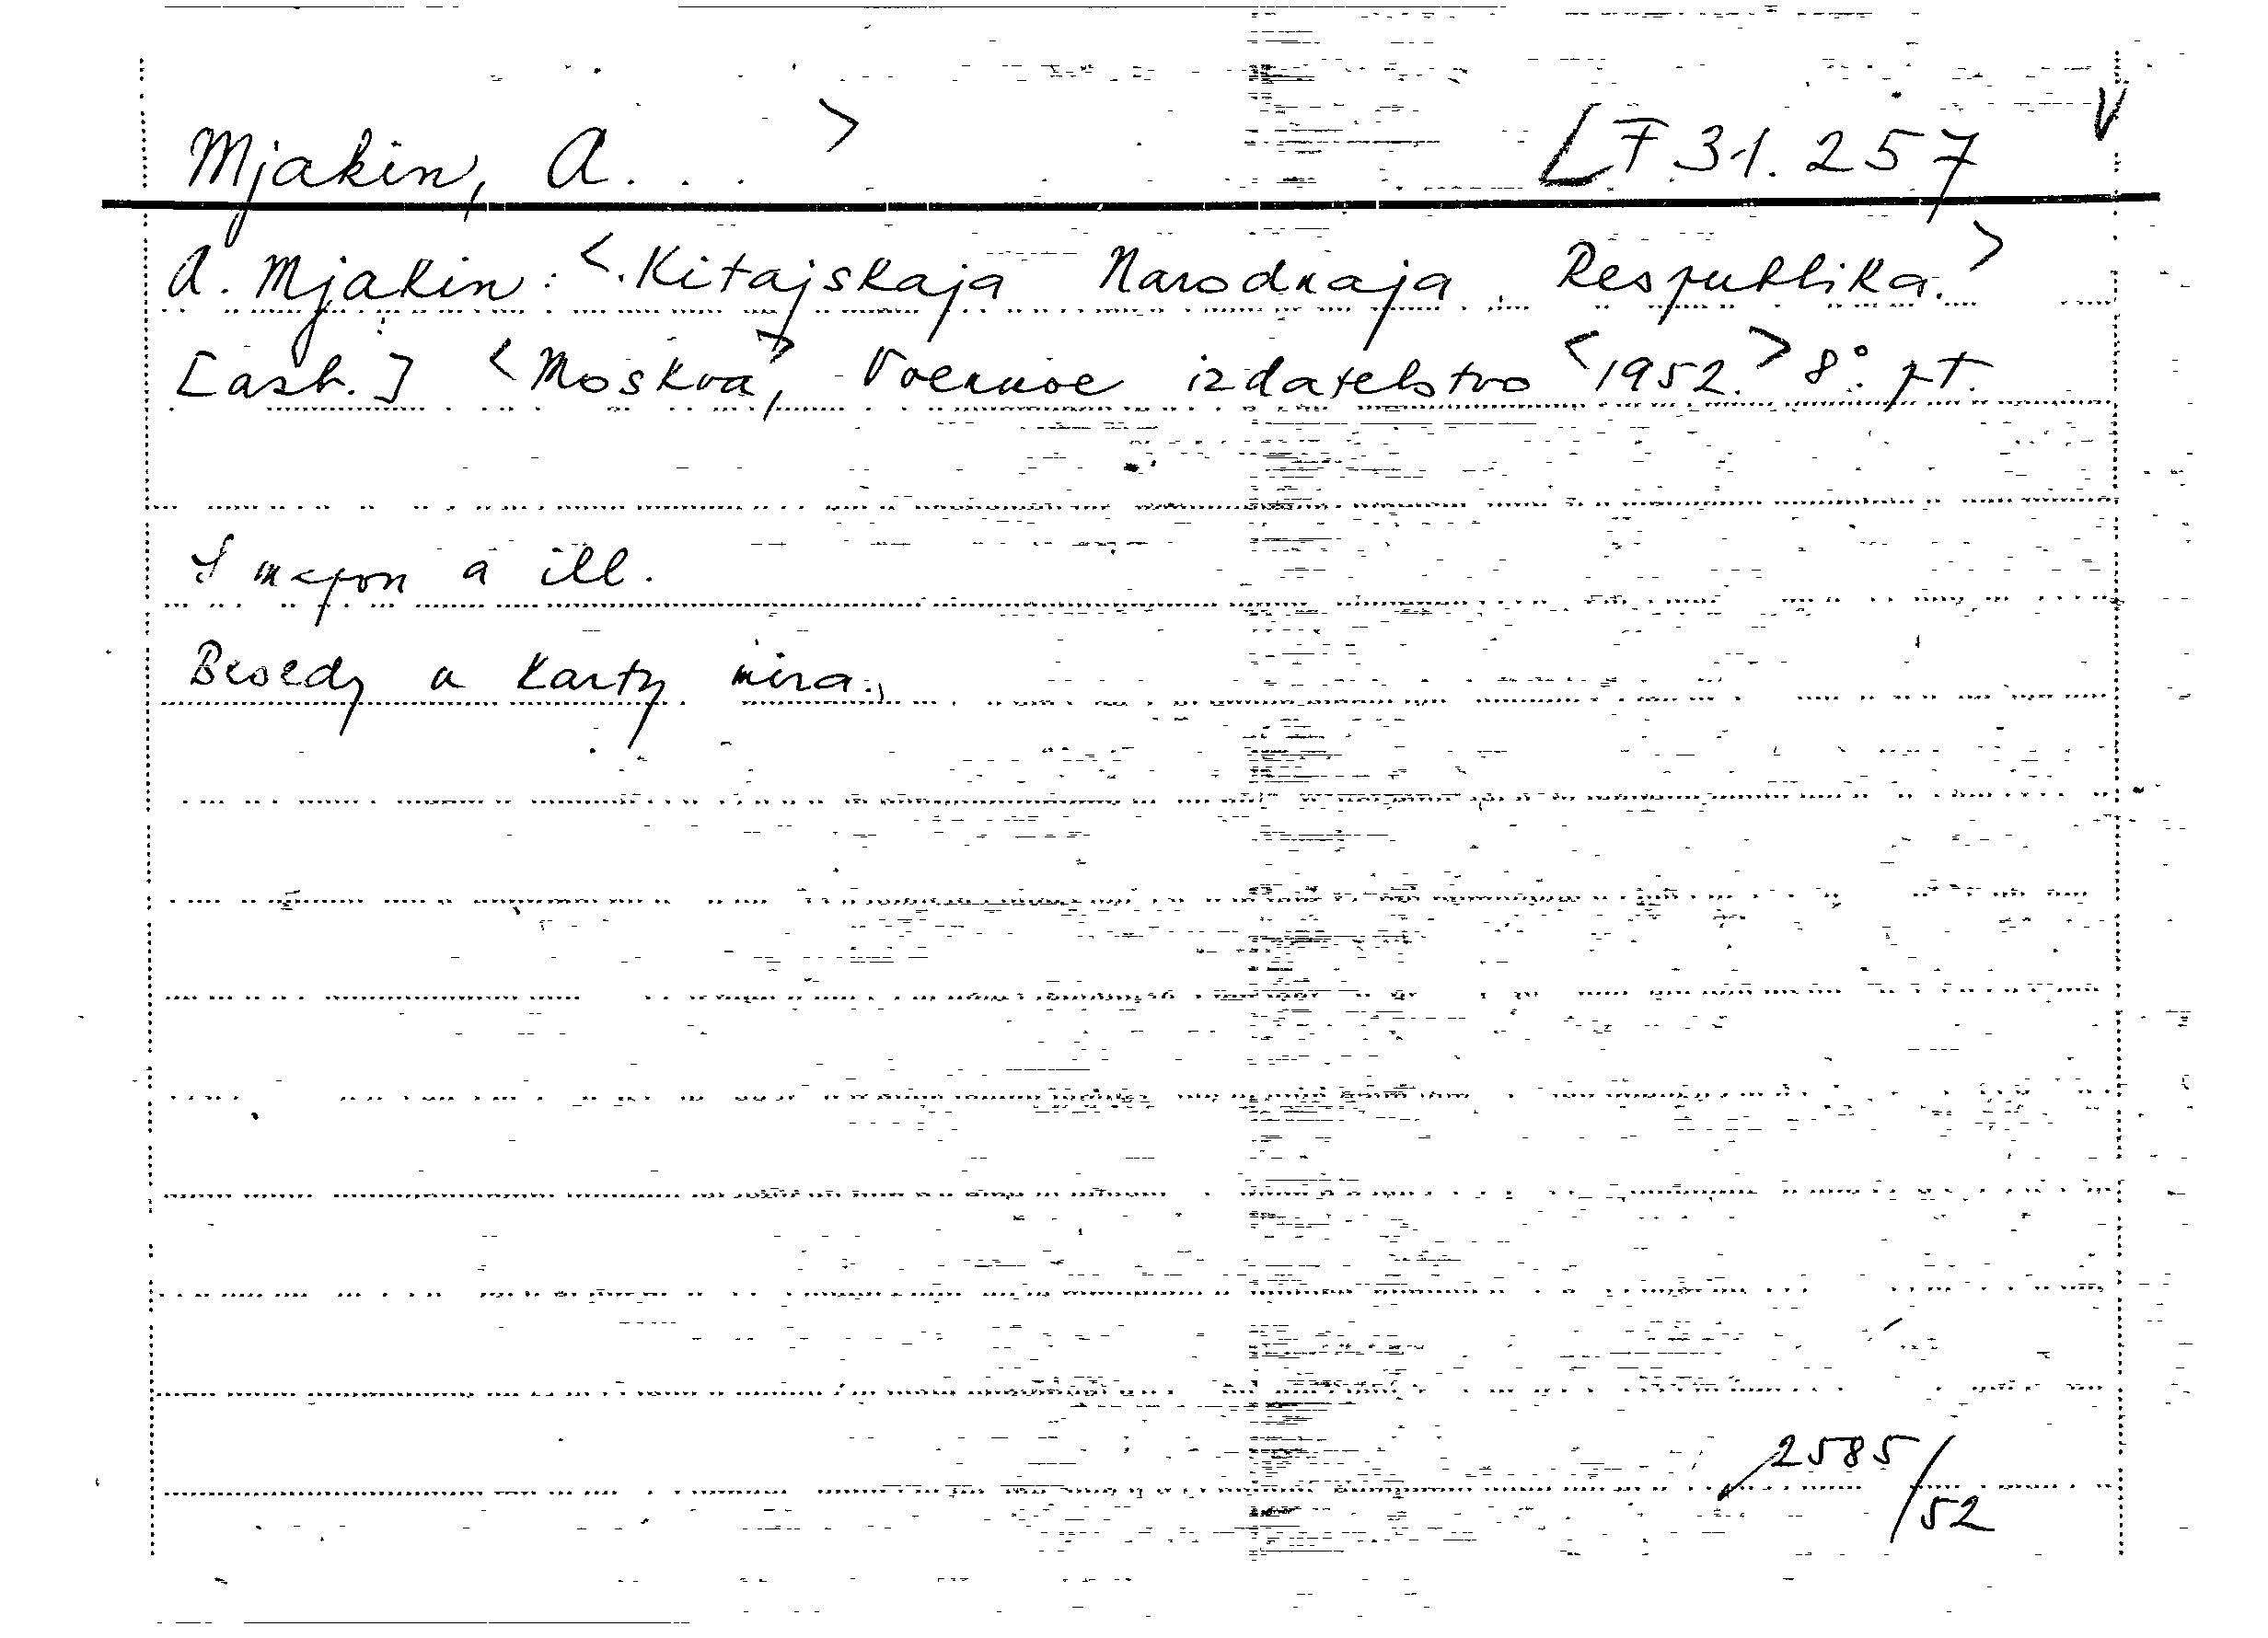 Mjakin, A... > LF 31.257
A. Mjakin: <Kitajskaja Narodnaja Respublika.>
[asb.] <Moskva>, Voennoe izdatelstvo <1952.> 8°. pt.
S mapon a ill.
Besedy u karty mira.
2585/52